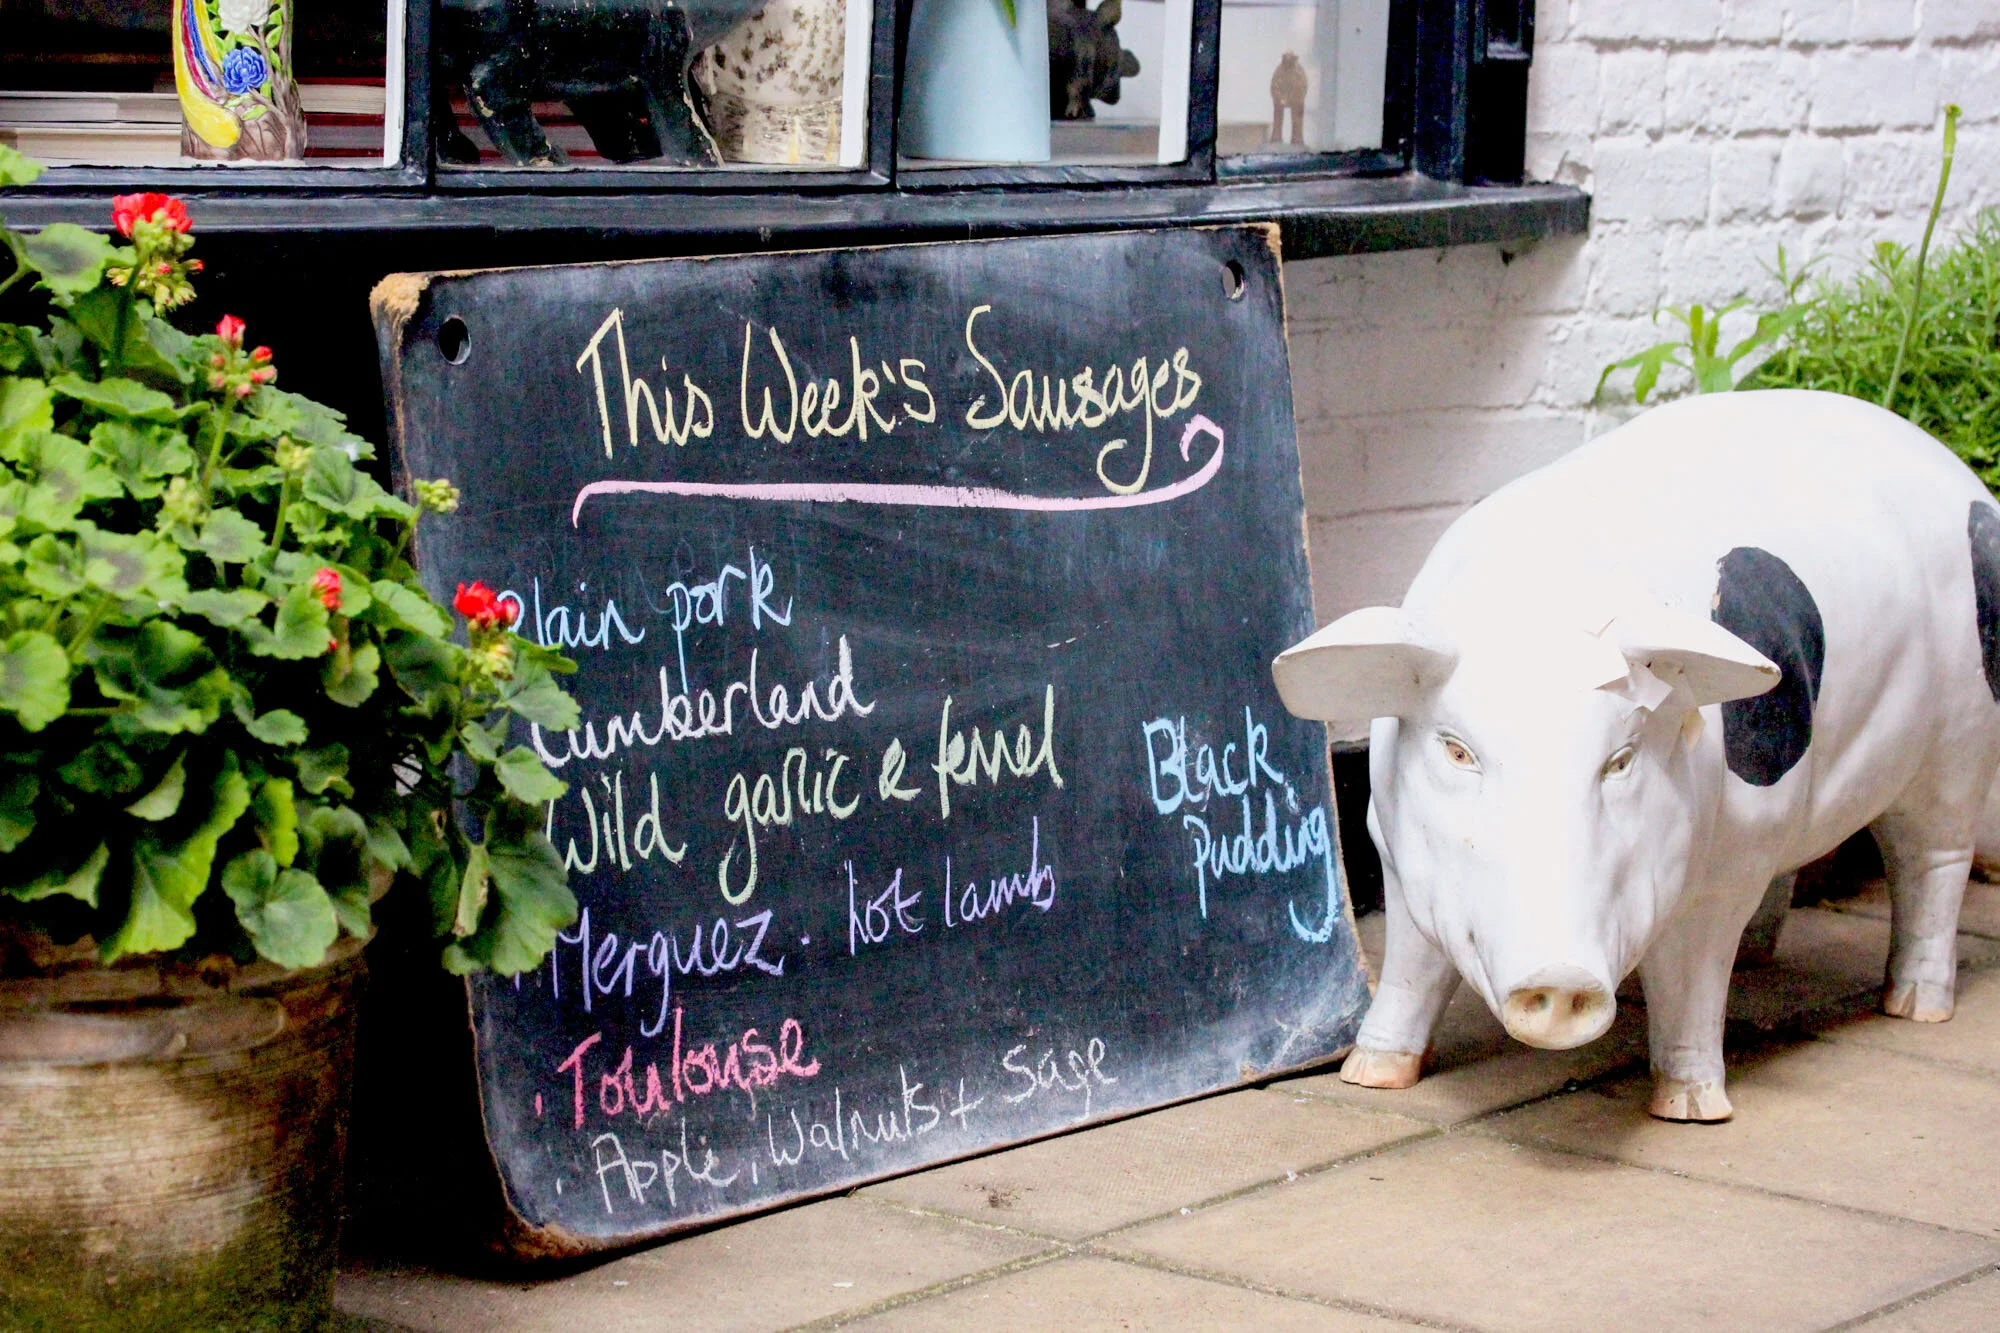 This Week's Sausages
Plain pork
Cumberland
Wild garlic & fennel
Black
Pudding
Merguez · hot lamb
· Toulouse
· Apple, Walnuts + Sage